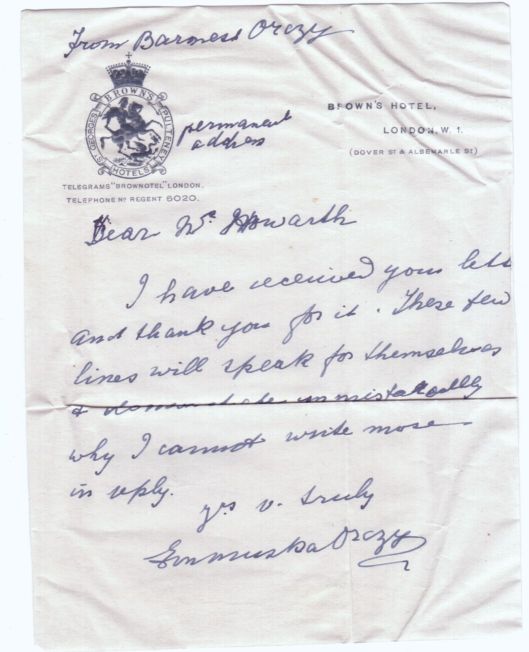 From Baroness Orczy
BROWN'S
ST GEORGES
PULTENEY
HOTELS
permanent
address
BROWN'S HOTEL,
LONDON, W. 1.
(DOVER ST & ALBEMARLE ST)
TELEGRAMS "BROWNOTEL" LONDON.
TELEPHONE No REGENT 6020.
Dear Mr. Howarth
I have received your lett
and thank you for it. These few
lines will speak for themselves
& demonstrate unmistakably
why I cannot write more
in reply.
yrs v. truly
Emmuska Orczy